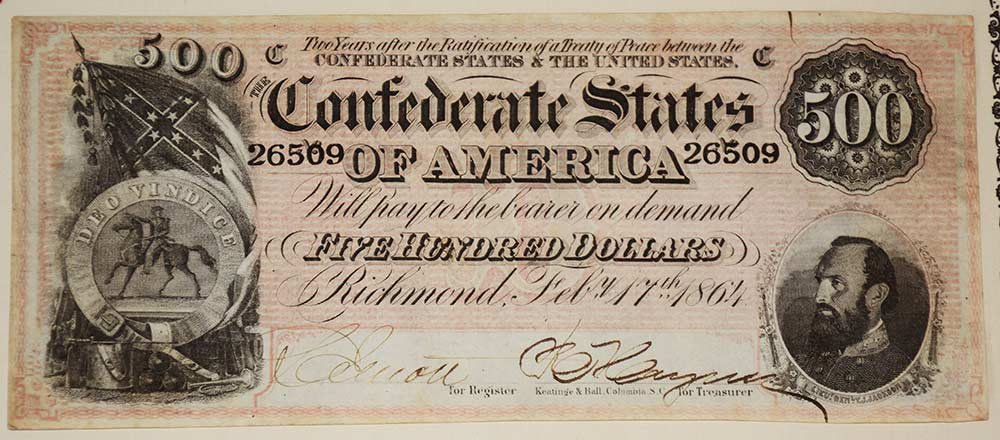 500 C Two Years after the Ratification of a Treaty of Peace between the C
CONFEDERATE STATES & THE UNITED STATES,
THE Confederate States
500
26509 OF AMERICA 26509
DEO VINDICE
Will pay to the bearer on demand
FIVE HUNDRED DOLLARS
Richmond, Feby. 17th 1864
for Register Keatinge & Ball, Columbia, S.C. for Treasurer
LIEUT. GEN. T. J. JACKSON